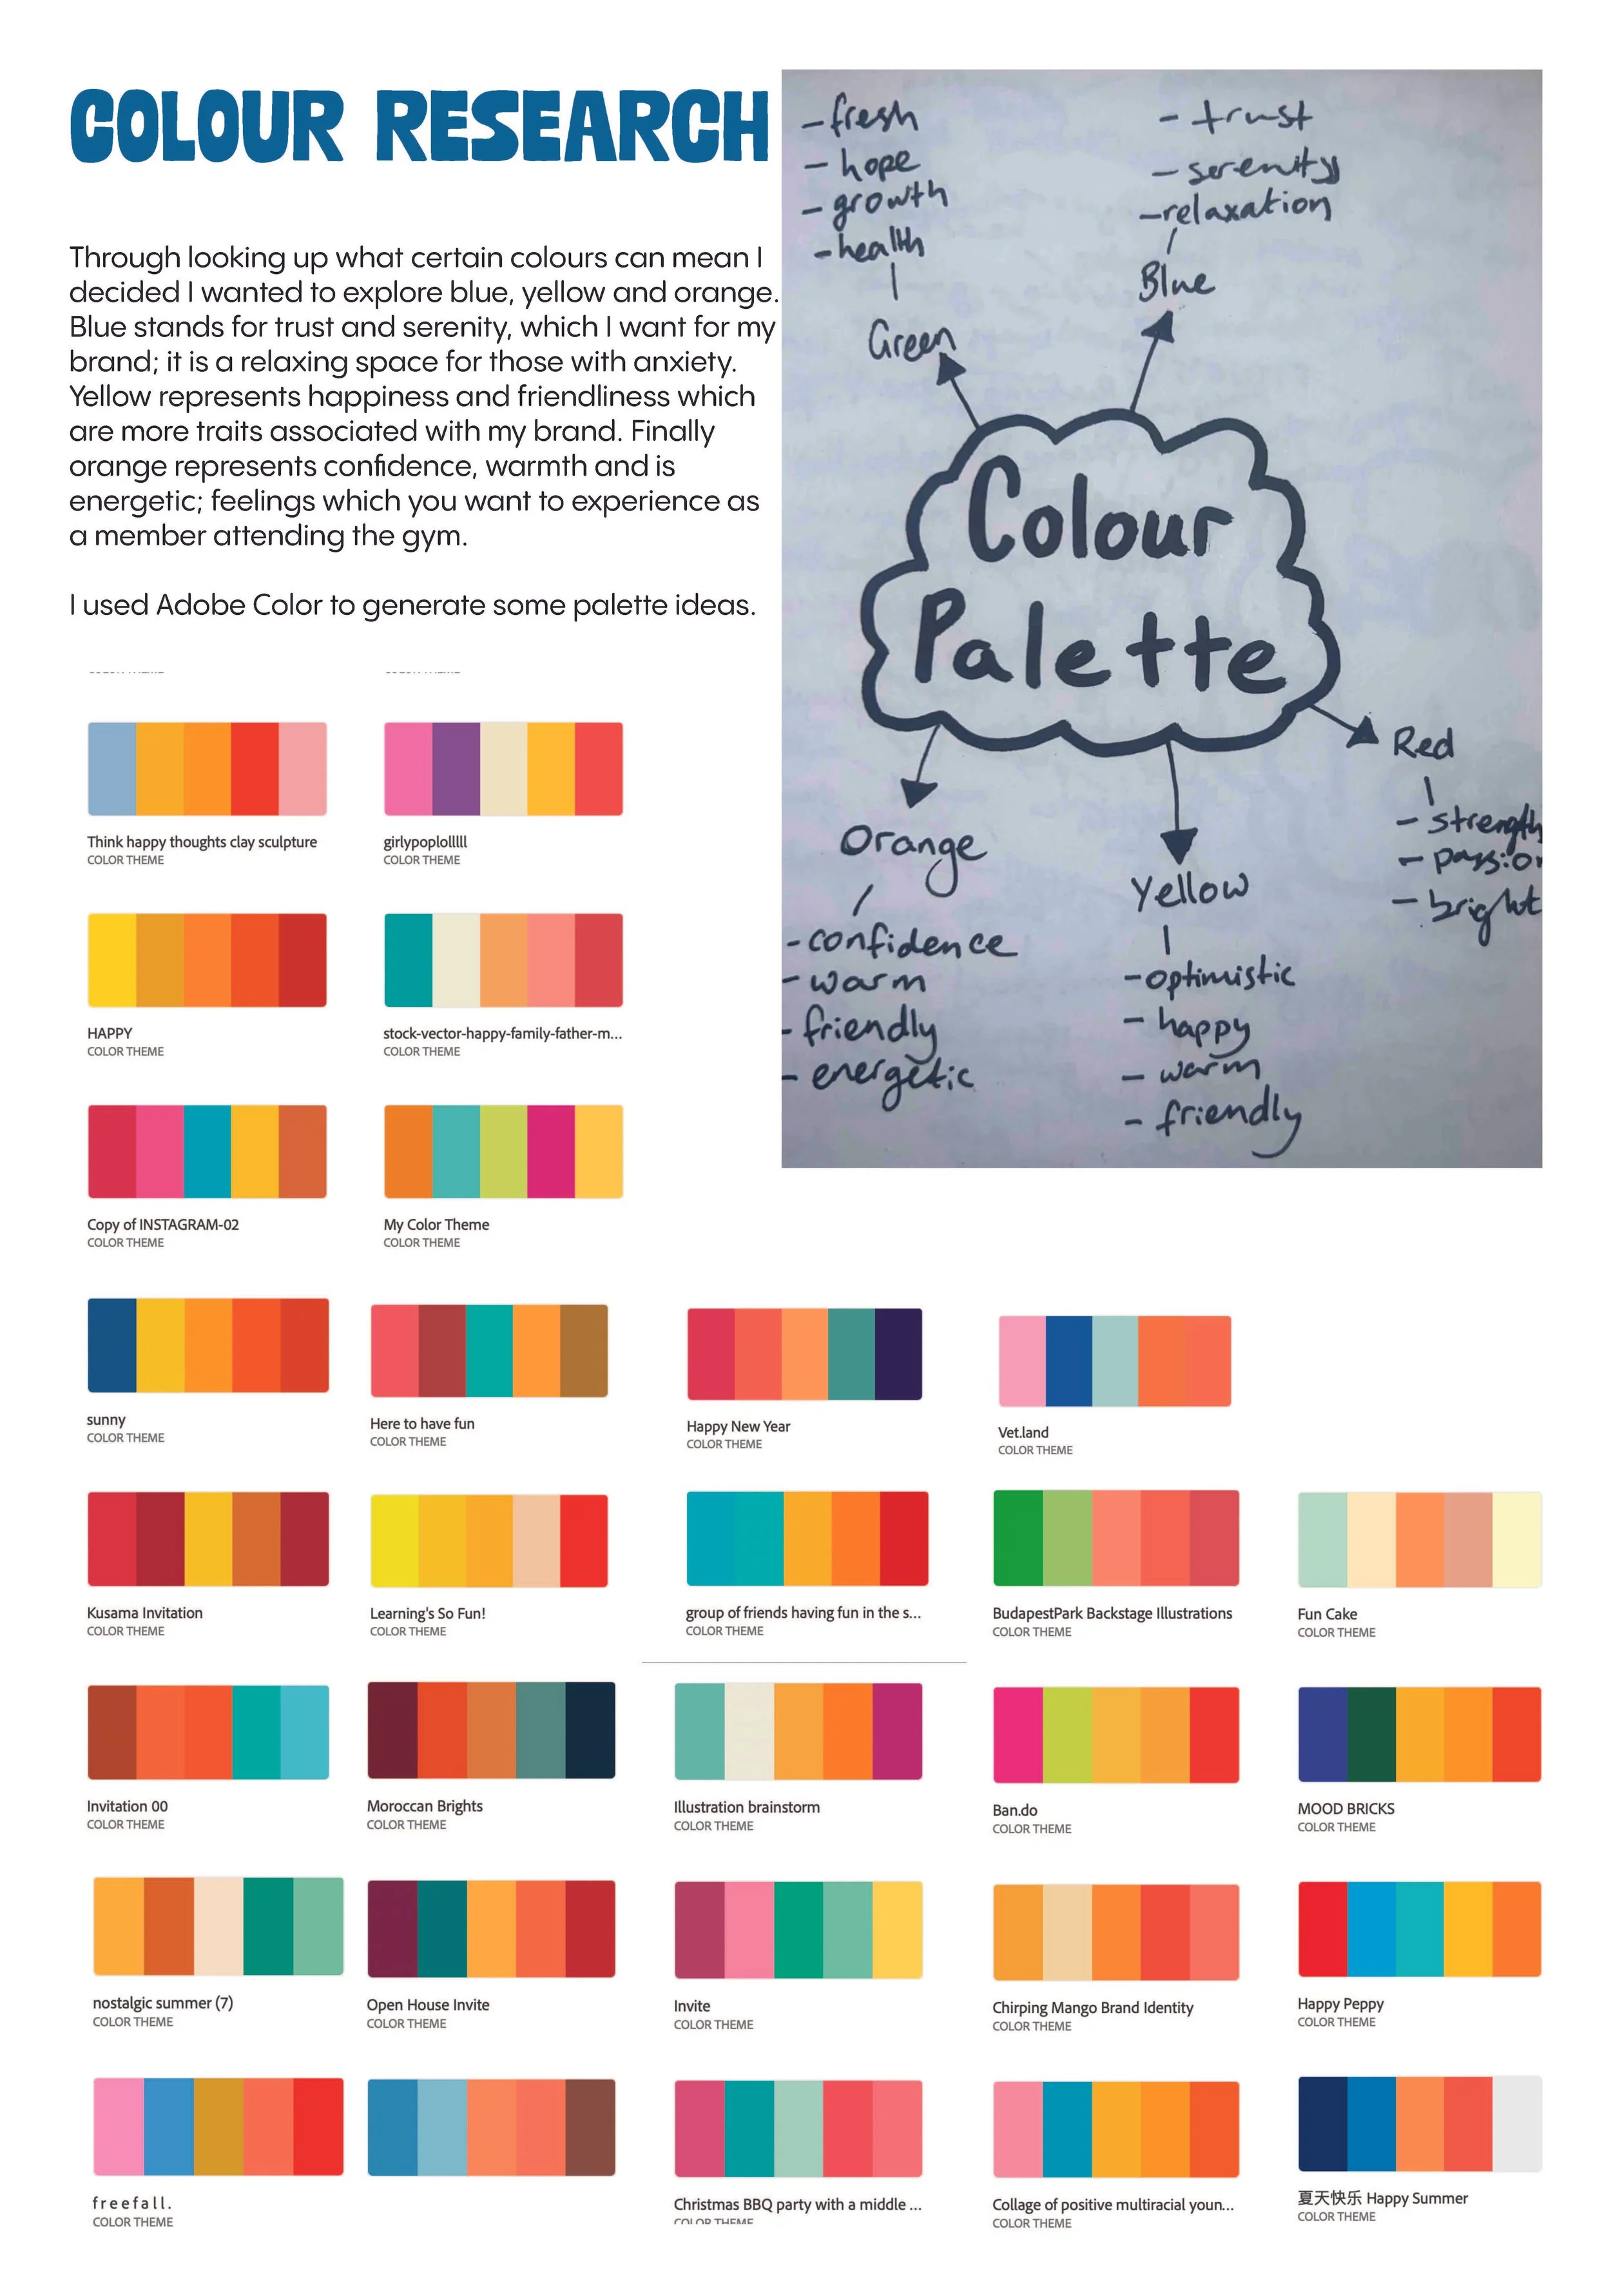 COLOUR RESEARCH
Through looking up what certain colours can mean I
decided I wanted to explore blue, yellow and orange.
Blue stands for trust and serenity, which I want for my
brand; it is a relaxing space for those with anxiety.
Yellow represents happiness and friendliness which
are more traits associated with my brand. Finally
orange represents confidence, warmth and is
energetic; feelings which you want to experience as
a member attending the gym.
I used Adobe Color to generate some palette ideas.
- fresh
- hope
- growth
- health
Green
- trust
- serenity
- relaxation
Blue
Colour
Palette
Red
- strength
- passion
- bright
Orange
- confidence
- warm
- friendly
- energetic
Yellow
- optimistic
- happy
- warm
- friendly
Think happy thoughts clay sculpture
COLOR THEME
girlypoplolllll
COLOR THEME
HAPPY
COLOR THEME
stock-vector-happy-family-father-m...
COLOR THEME
Copy of INSTAGRAM-02
COLOR THEME
My Color Theme
COLOR THEME
sunny
COLOR THEME
Here to have fun
COLOR THEME
Happy New Year
COLOR THEME
Vet.land
COLOR THEME
Kusama Invitation
COLOR THEME
Learning's So Fun!
COLOR THEME
group of friends having fun in the s...
COLOR THEME
BudapestPark Backstage Illustrations
COLOR THEME
Fun Cake
COLOR THEME
Invitation 00
COLOR THEME
Moroccan Brights
COLOR THEME
Illustration brainstorm
COLOR THEME
Ban.do
COLOR THEME
MOOD BRICKS
COLOR THEME
nostalgic summer (7)
COLOR THEME
Open House Invite
COLOR THEME
Invite
COLOR THEME
Chirping Mango Brand Identity
COLOR THEME
Happy Peppy
COLOR THEME
freefall.
COLOR THEME
Christmas BBQ party with a middle ...
COLOR THEME
Collage of positive multiracial youn...
COLOR THEME
夏天快乐 Happy Summer
COLOR THEME